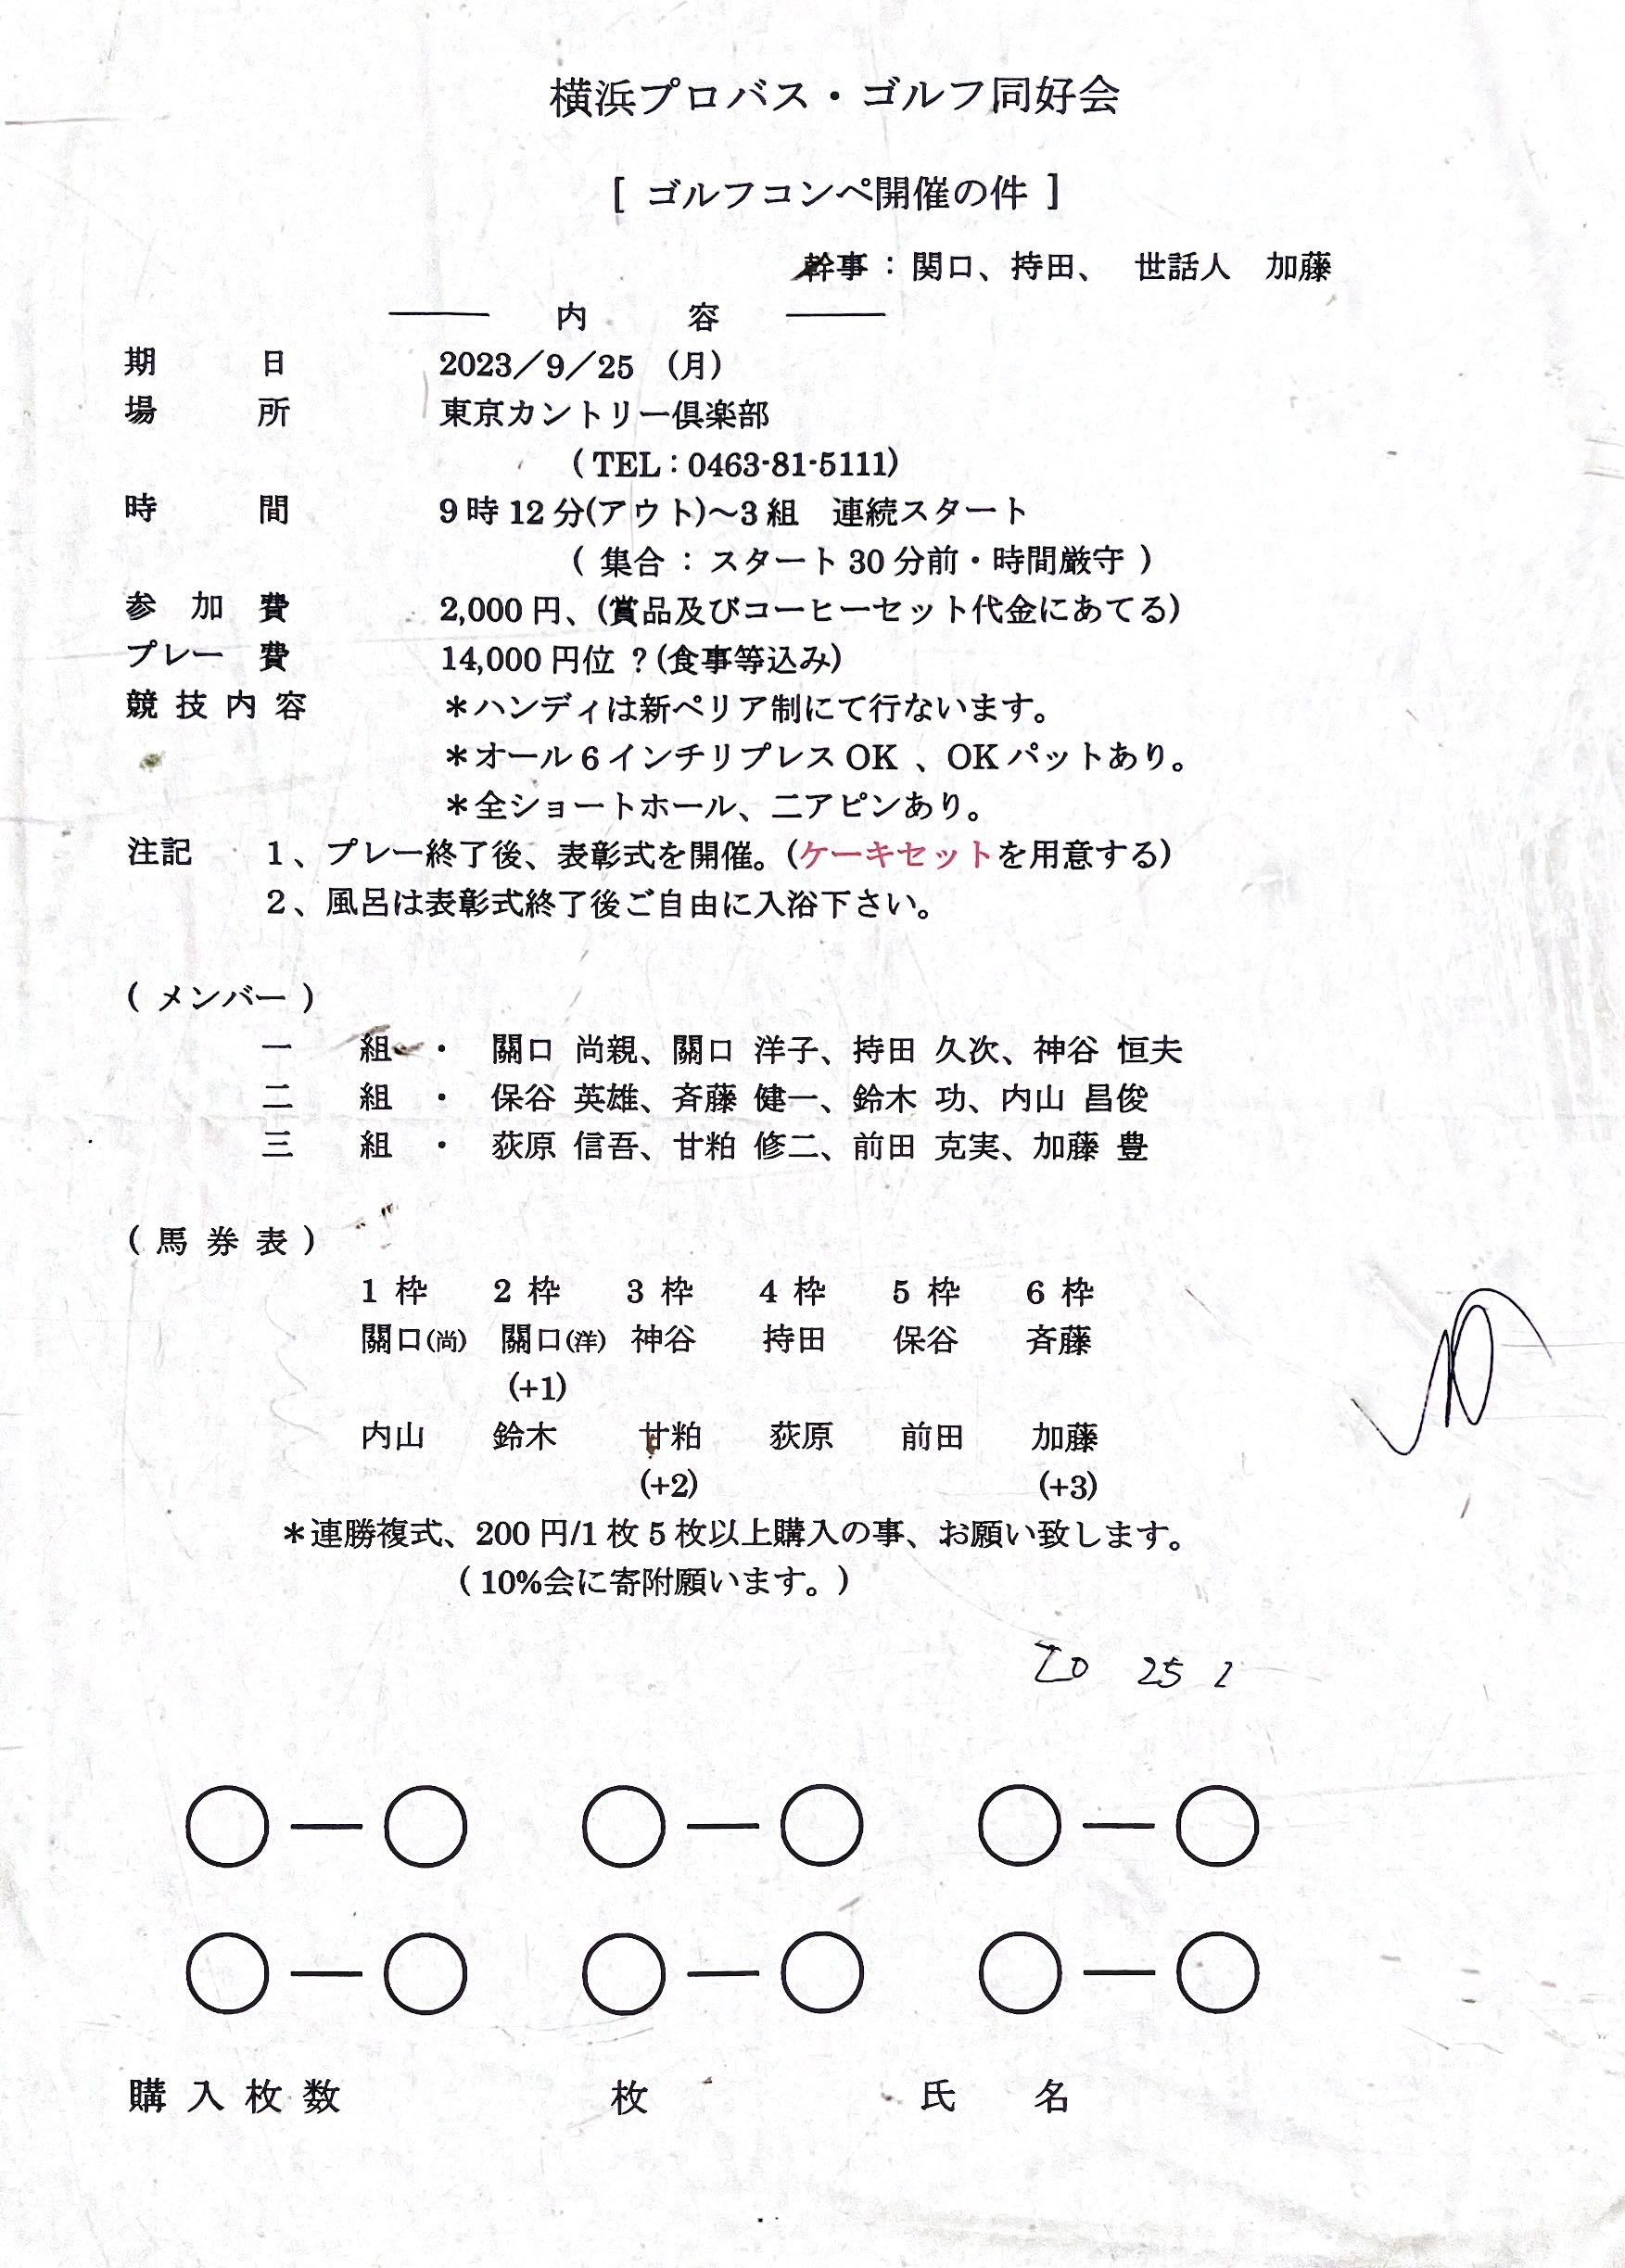 横浜プロバス・ゴルフ同好会
[ ゴルフコンペ開催の件 ]
幹事：関口、持田、 世話人 加藤
内 容
期 日 2023／9／25 (月)
場 所 東京カントリー倶楽部
(TEL：0463-81-5111)
時 間 9時12分(アウト)～3組 連続スタート
( 集合 ： スタート 30 分前・時間厳守 )
参 加 費 2,000 円、(賞品及びコーヒーセット代金にあてる)
プレー 費 14,000 円位 ? (食事等込み)
競 技 内 容 ＊ハンディは新ペリア制にて行ないます。
＊オール 6 インチリプレス OK 、OK パットあり。
＊全ショートホール、二アピンあり。
注記 1、プレー終了後、表彰式を開催。(ケーキセットを用意する)
2、風呂は表彰式終了後ご自由に入浴下さい。
( メンバー )
一 組 ・ 關口 尚親、關口 洋子、持田 久次、神谷 恒夫
二 組 ・ 保谷 英雄、斉藤 健一、鈴木 功、内山 昌俊
三 組 ・ 荻原 信吾、甘粕 修二、前田 克実、加藤 豊
( 馬 券 表 )
1 枠 2 枠 3 枠 4 枠 5 枠 6 枠
關口(尚) 關口(洋) 神谷 持田 保谷 斉藤
(+1)
内山 鈴木 甘粕 荻原 前田 加藤
(+2) (+3)
＊連勝複式、200 円/1 枚 5 枚以上購入の事、お願い致します。
( 10%会に寄附願います。)
20 25 2
○―○ ○―○ ○―○
○―○ ○―○ ○―○
購 入 枚 数 枚 氏 名